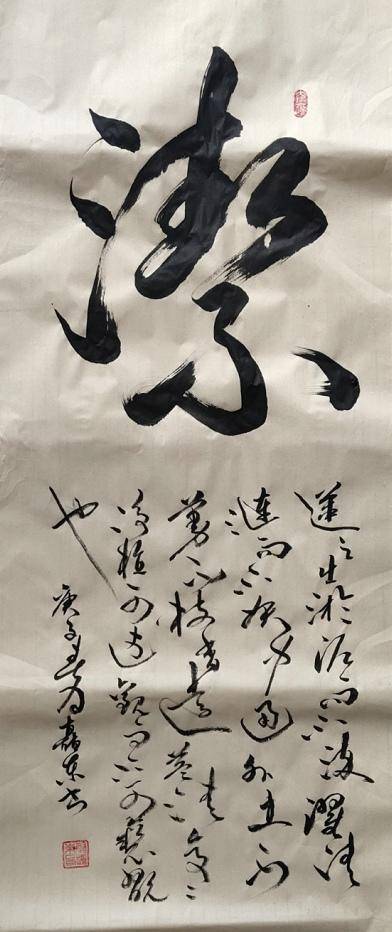 潔
蓮之出淤泥而不染濯清
漣而不妖中通外直不
蔓不枝香遠益清亭〻
淨植可遠觀而不可褻翫
也
庚子春